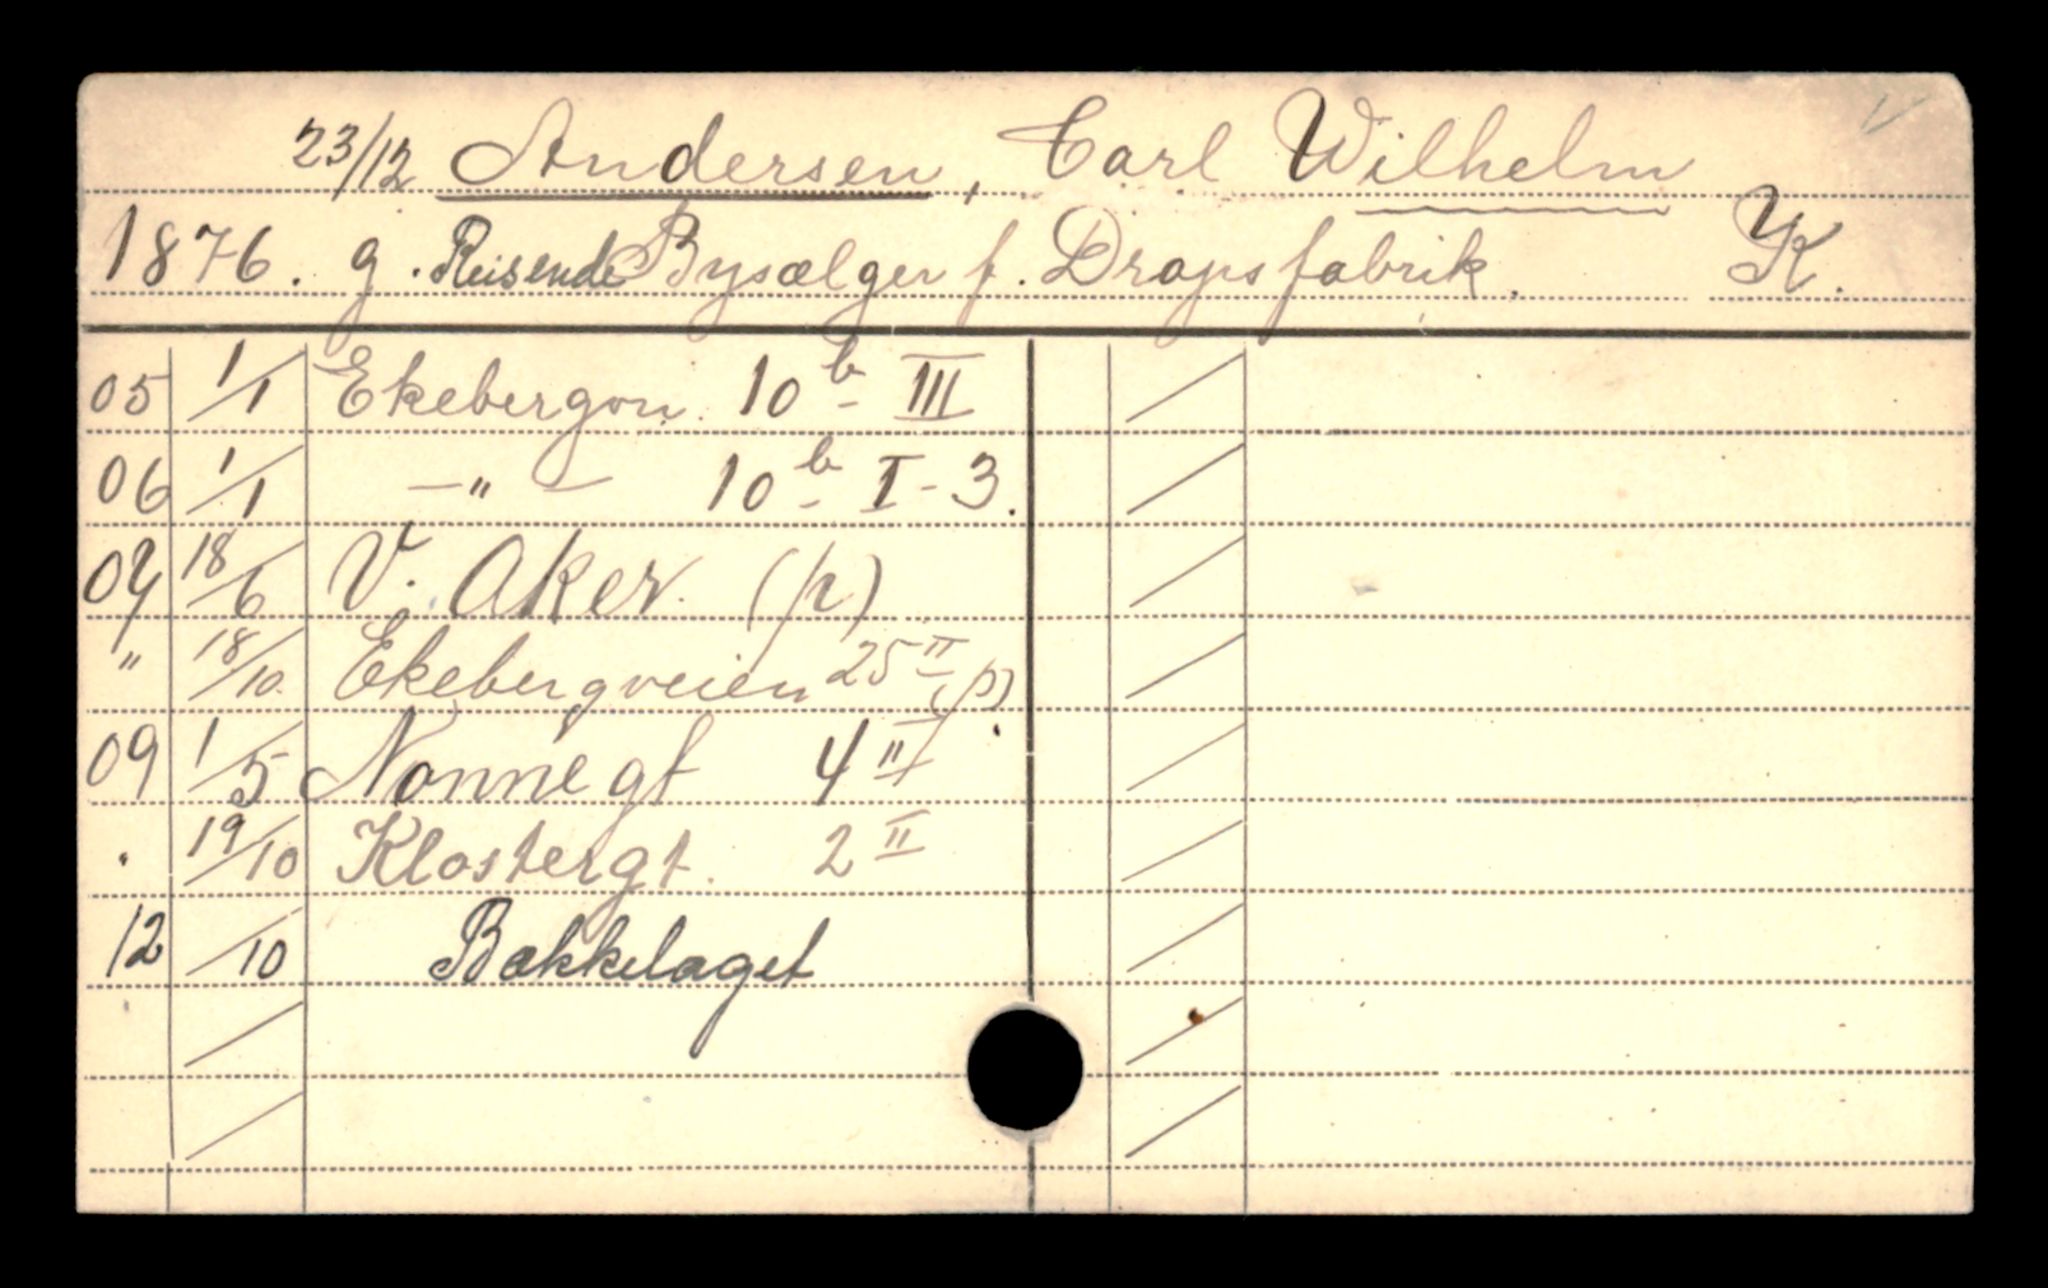 23/12 Andersen, Carl Wilhelm
1876. g. Reisende Bysælger f. Dropsfabrik. K.
05 1/1 Ekebergvn. 10 b - III
06 1/1 —"— 10 b - I - 3.
07 18/6 V. Aker. (p)
" 18/10 Ekebergveien 25 II (p)
09 1/5 Nonnegt 4 II
. 19/10 Klostergt. 2 II
12 /10 Bækkelaget